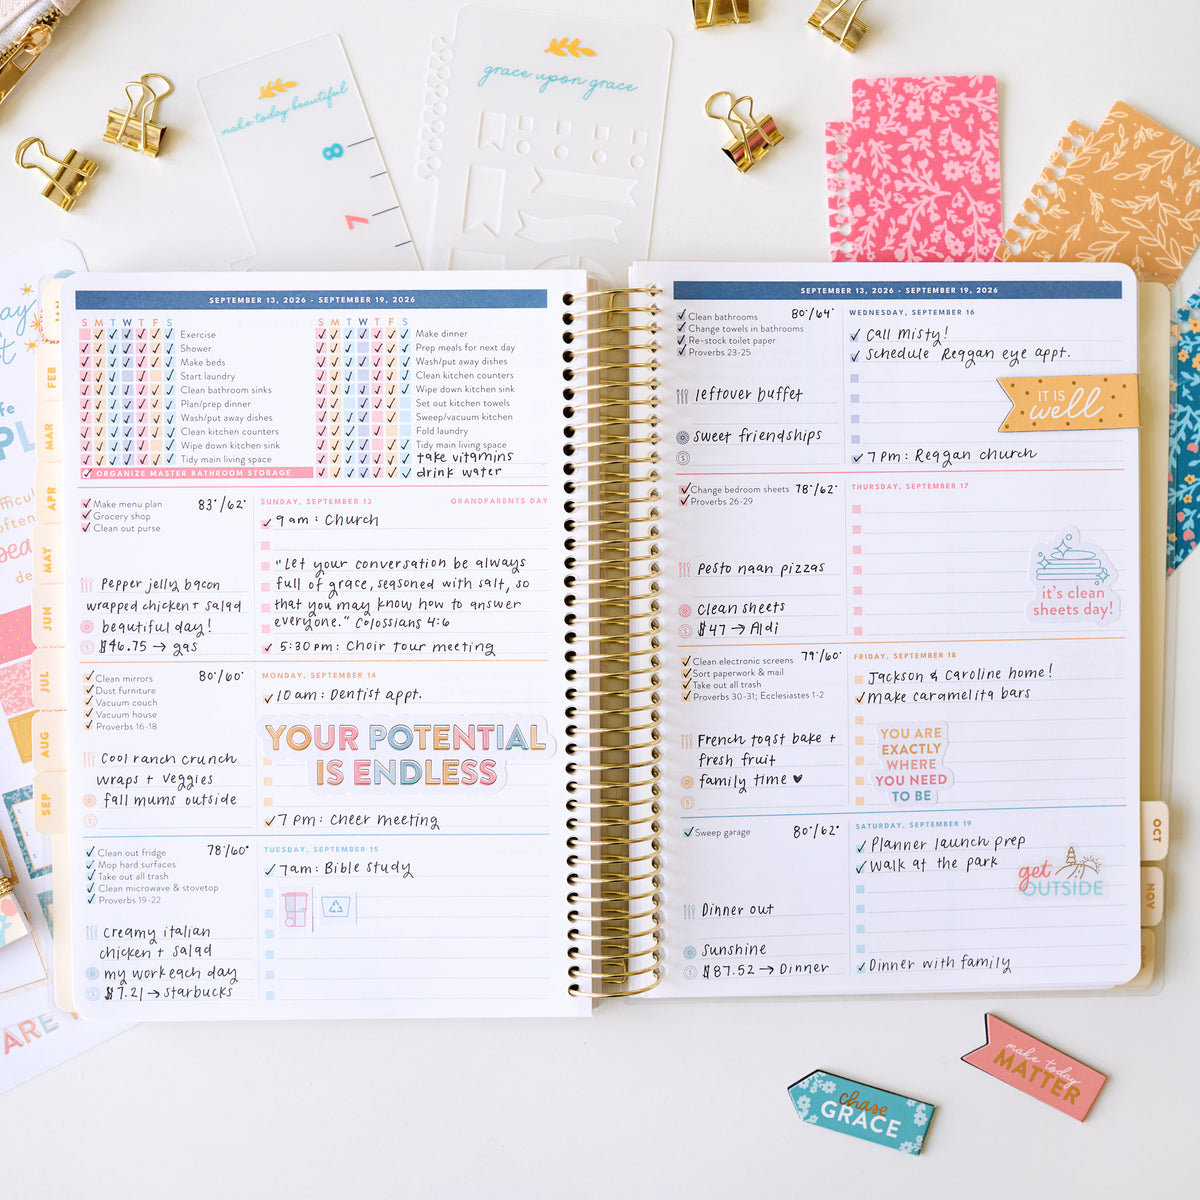 make today beautiful
8
7
grace upon grace
FEB
MAR
APR
MAY
JUN
JUL
AUG
SEP
SEPTEMBER 13, 2026 - SEPTEMBER 19, 2026
S M T W T F S
Exercise
Shower
Make beds
Start laundry
Clean bathroom sinks
Plan/prep dinner
Wash/put away dishes
Clean kitchen counters
Wipe down kitchen sink
Tidy main living space
ORGANIZE MASTER BATHROOM STORAGE
S M T W T F S
Make dinner
Prep meals for next day
Wash/put away dishes
Clean kitchen counters
Wipe down kitchen sink
Set out kitchen towels
Sweep/vacuum kitchen
Fold laundry
Tidy main living space
take vitamins
drink water
Make menu plan
Grocery shop
Clean out purse
83°/62°
Pepper jelly bacon
wrapped chicken + salad
beautiful day!
$46.75 → gas
SUNDAY, SEPTEMBER 13
GRANDPARENTS DAY
9am: Church
"Let your conversation be always
full of grace, seasoned with salt, so
that you may know how to answer
everyone." Colossians 4:6
5:30pm: Choir tour meeting
Clean mirrors
Dust furniture
Vacuum couch
Vacuum house
Proverbs 16-18
80°/60°
Cool ranch crunch
wraps + veggies
fall mums outside
MONDAY, SEPTEMBER 14
10am: Dentist appt.
YOUR POTENTIAL
IS ENDLESS
7pm: Cheer meeting
Clean out fridge
Mop hard surfaces
Take out all trash
Clean microwave & stovetop
Proverbs 19-22
78°/60°
Creamy italian
chicken + salad
my work each day
$7.21 → Starbucks
TUESDAY, SEPTEMBER 15
7am: Bible study
SEPTEMBER 13, 2026 - SEPTEMBER 19, 2026
Clean bathrooms
Change towels in bathrooms
Re-stock toilet paper
Proverbs 23-25
80°/64°
leftover buffet
sweet friendships
WEDNESDAY, SEPTEMBER 16
Call Misty!
Schedule Reagan eye appt.
IT IS
well
7pm: Reagan church
Change bedroom sheets
Proverbs 26-29
78°/62°
Pesto naan pizzas
Clean sheets
$47 → Aldi
THURSDAY, SEPTEMBER 17
it's clean
sheets day!
Clean electronic screens
Sort paperwork & mail
Take out all trash
Proverbs 30-31; Ecclesiastes 1-2
79°/60°
French toast bake +
fresh fruit
family time ♥
FRIDAY, SEPTEMBER 18
Jackson & Caroline home!
make caramelita bars
YOU ARE
EXACTLY
WHERE
YOU NEED
TO BE
Sweep garage
80°/62°
Dinner out
Sunshine
$87.52 → Dinner
SATURDAY, SEPTEMBER 19
Planner launch prep
Walk at the park
get
OUTSIDE
Dinner with family
OCT
NOV
make today
MATTER
chase
GRACE